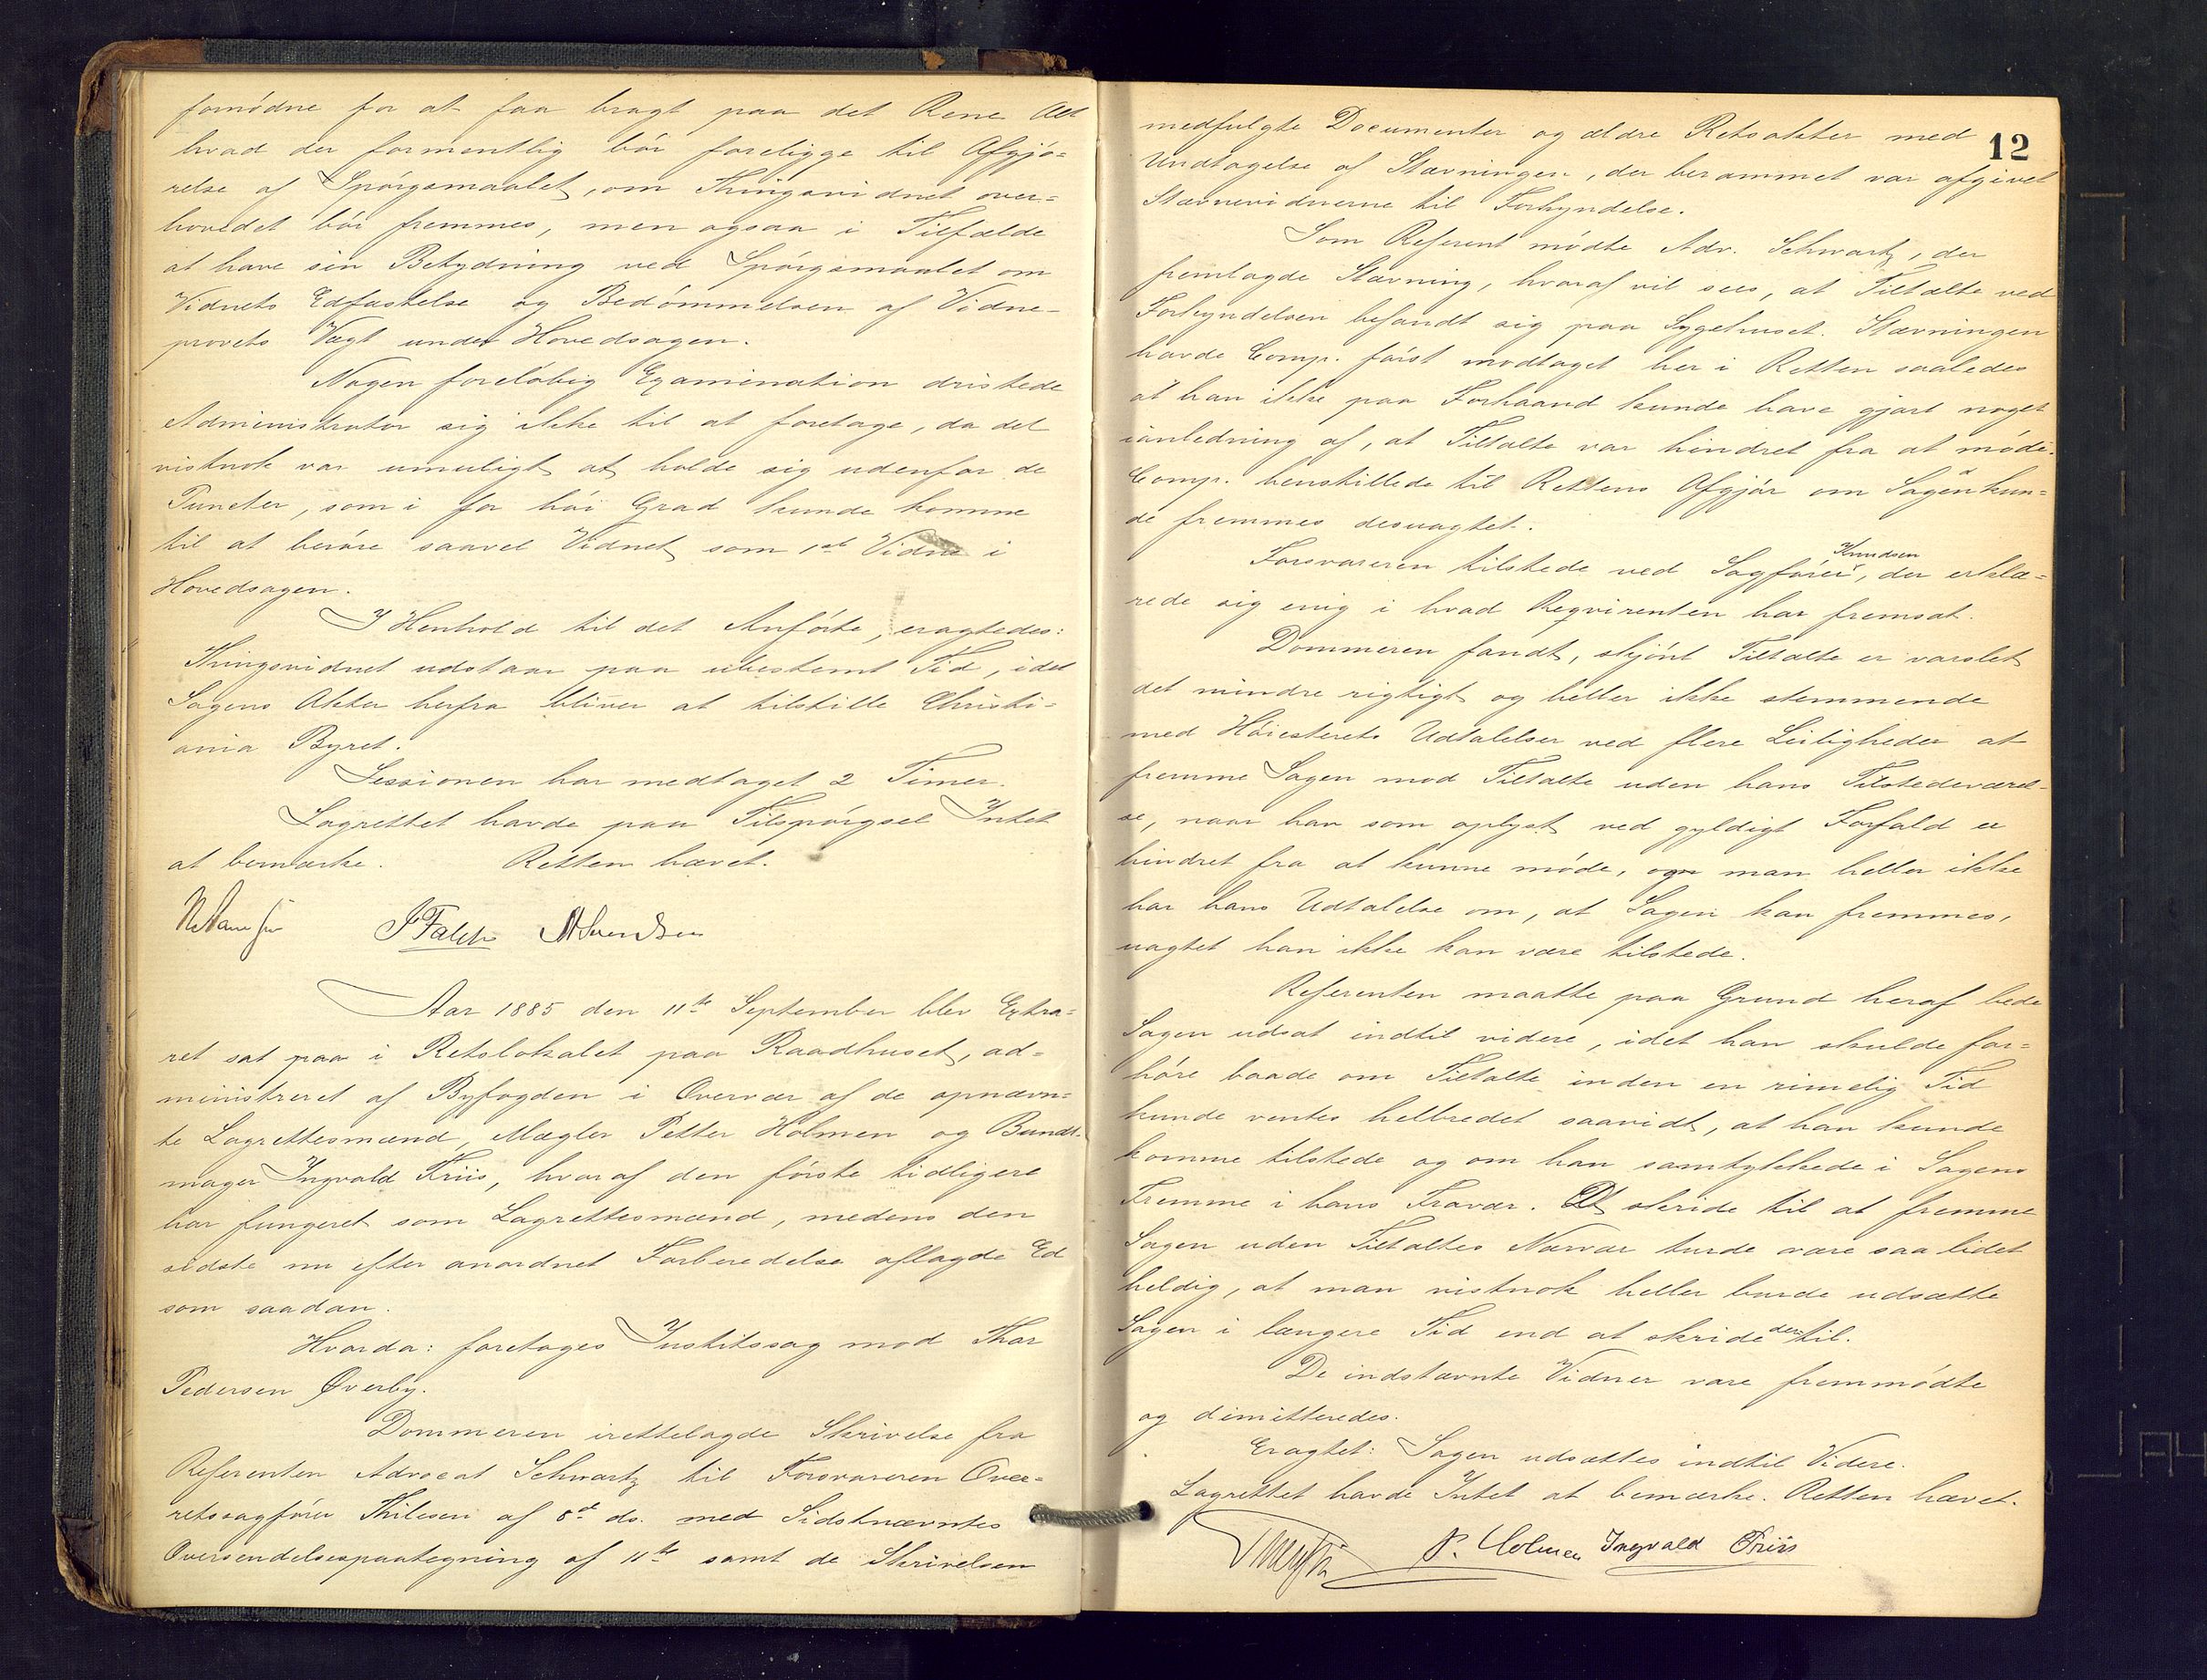 fornødne for at faa bragt paa det Rene Alt
hvad der formentlig bör foreligge til Afgjö=
relse af Spörgsmaalet, om Thingsvidnet over=
hovedet bör fremmes, men ogsaa i Tilfælde
at have sin Betydning ved Spörgsmaalet om
Vidnets Edfæstelse og Bedömmelsen af Vidne-
provets Vægt under Hovedsagen.
Nogen foreløbig Examination dristede
Administrator sig ikke til at foretage, da det
vistnok var umuligt at holde sig udenfor de
Puncter, som i for höi Grad kunde komme
til at beröre saavel Vidnet som 1ste Vidne i
Hovedsagen.
I Henhold til det Anförte, eragtedes:
Thingsvidnet udstaar paa ubestemt Tid, idet
Sagens Akter herfra bliver at tilstille Christi=
ania Byret.
Sessionen har medtaget 2 Timer.
Lagrettet havde paa Tilspörgsel Intet
at bemærke. Retten hævet.
J Falch A Svendsen
Aar 1885 den 11te September blev Extra=
ret sat paa i Retslokalet paa Raadhuset, ad=
ministreret af Byfogden i Overvær af de opnævn=
te Lagrettesmænd, Mægler Petter Holmen og Bundt-
mager Ingvald Friis, hvoraf den förste tidligere
har fungeret som Lagrettesmænd, medens den
sidste nu efter anordnet Forberedelse aflagde Ed
som saadan.
Hvorda: foretoges Justitssag mod Thor
Pedersen Øverby.
Dommeren irettelagde Skrivelse fra
Referenten Advocat Schwartz til Forsvareren Over=
retssagförer Thilesen af 8de ds. med Sidstnævntes
Oversendelsespaategning af 11te samt de Skrivelsen
12
medfulgte Documenter og ældre Retsakter med
Undtagelse af Stævningen, der berammet var afgivet
Stævnevidnerne til Forkyndelse.
Som Referent mødte Adv. Schwartz, der
fremlagde Stævning, hvoraf vil sees, at Tiltalte ved
Forkyndelsen befandt sig paa Sygehuset. Stævningen
havde Comp. först modtaget her i Retten saaledes
at han ikke paa Forhaand kunde have gjort noget
ianledning af, at Tiltalte var hindret fra at møde.
Comp. henstillede til Rettens Afgjör om Sagen kun=
de fremmes desuagtet.
Forsvareren tilstede ved Sagförer Knudsen, der erklæ=
rede sig enig i hvad Reqvirenten har fremsat.
Dommeren fandt, skjönt Tiltalte er varslet
det mindre rigtigt og heller ikke stemmende
med Höiesterets Udtalelser ved flere Leiligheder at
fremme Sagen mod Tiltalte uden hans Tilstedeværel-
se, naar han som oplyst ved gyldigt Forfald er
hindret fra at kunne møde, og man heller ikke
har hans Udtalelse om, at Sagen kan fremmes,
uagtet han ikke kan være tilstede.
Referenten maatte paa Grund heraf bede
Sagen udsat indtil videre, idet han skulde for=
höre baade om Tiltalte inden en rimelig Tid
kunde ventes helbredet saavidt, at han kunde
komme tilstede og om han samtykkede i Sagens
Fremme i hans Fravær. At skride til at fremme
Sagen uden Tiltaltes Nærvær turde være saa lidet
heldig, at man vistnok heller burde udsætte
Sagen i længere Tid end at skride dertil.
De indstævnte Vidner vare fremmødte
og dimitteredes.
Eragtet: Sagen udsættes indtil Videre.
Lagrettet havde Intet at bemærke. Retten hævet.
P. Holmen Ingvald Friis